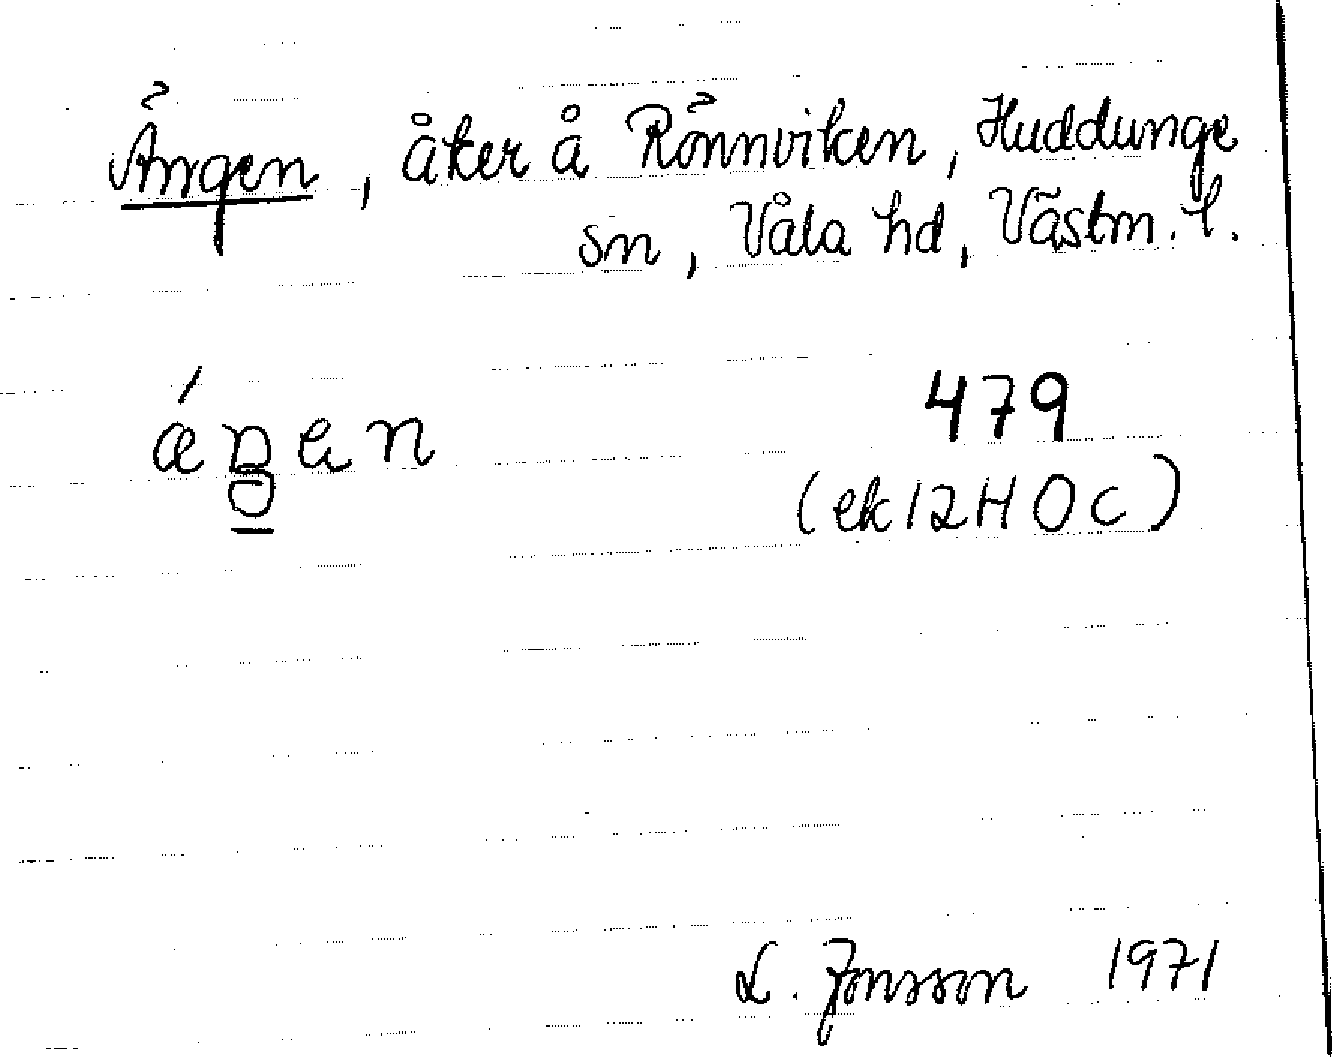 Ängen, åker å Rönnviken, Huddunge
sn, Våla hd, Västm. l.
479
(ek 12H 0c)
L. Jonsson 1971